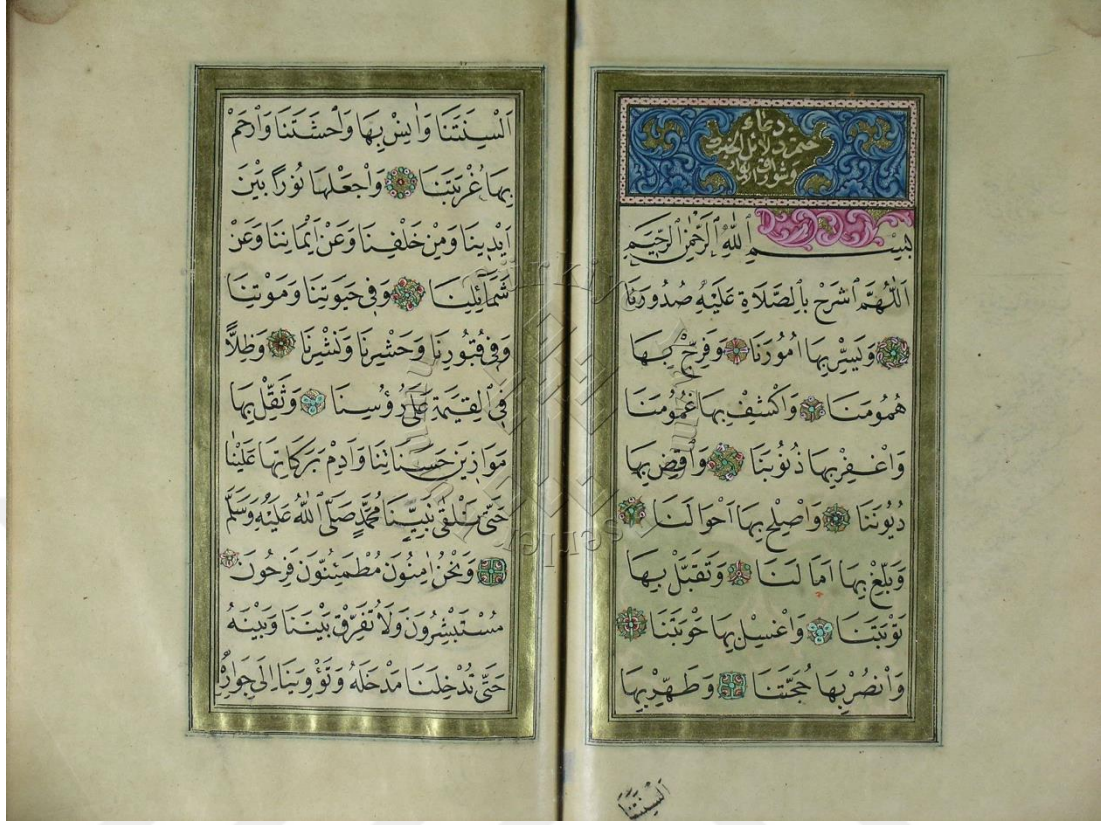 دعاء
ختم دلائل الخيرات
بِسْمِ اللّٰهِ الرَّحْمٰنِ الرَّحِيمِ
اَللّٰهُمَّ اشْرَحْ بِالصَّلَاةِ عَلَيْهِ صُدُورَنَا
وَيَسِّرْ بِهَا اُمُورَنَا وَفَرِّجْ بِهَا
هُمُومَنَا وَاكْشِفْ بِهَا غُمُومَنَا
وَاغْفِرْ بِهَا ذُنُوبَنَا وَاقْضِ بِهَا
دُيُونَنَا وَاَصْلِحْ بِهَا اَحْوَالَنَا
وَبَلِّغْ بِهَا اٰمَالَنَا وَتَقَبَّلْ بِهَا
تَوْبَتَنَا وَاغْسِلْ بِهَا حَوْبَتَنَا
وَانْصُرْ بِهَا حُجَّتَنَا وَطَهِّرْ بِهَا
اَلْسِنَتَنَا
اَلْسِنَتَنَا وَاٰنِسْ بِهَا وَحْشَتَنَا وَارْحَمْ
بِهَا غُرْبَتَنَا وَاجْعَلْهَا نُورًا بَيْنَ
اَيْدِينَا وَمِنْ خَلْفِنَا وَعَنْ اَيْمَانِنَا وَعَنْ
شَمَائِلِنَا وَفِي حَيٰوتِنَا وَمَوْتِنَا
وَفِي قُبُورِنَا وَحَشْرِنَا وَنَشْرِنَا وَظِلًّا
فِي الْقِيٰمَةِ عَلٰى رُؤُسِنَا وَثَقِّلْ بِهَا
مَوَازِينَ حَسَنَاتِنَا وَاَدِمْ بَرَكَاتِهَا عَلَيْنَا
حَتّٰى نَلْقٰى نَبِيَّنَا مُحَمَّدٍ صَلَّى اللّٰهُ عَلَيْهِ وَسَلَّمَ
وَنَحْنُ اٰمِنُونَ مُطْمَئِنُّونَ فَرِحُونَ
مُسْتَبْشِرُونَ وَلَا تُفَرِّقْ بَيْنَنَا وَبَيْنَهُ
حَتّٰى تُدْخِلَنَا مَدْخَلَهُ وَتُؤْوِيَنَا اِلٰى جِوَارِهِ